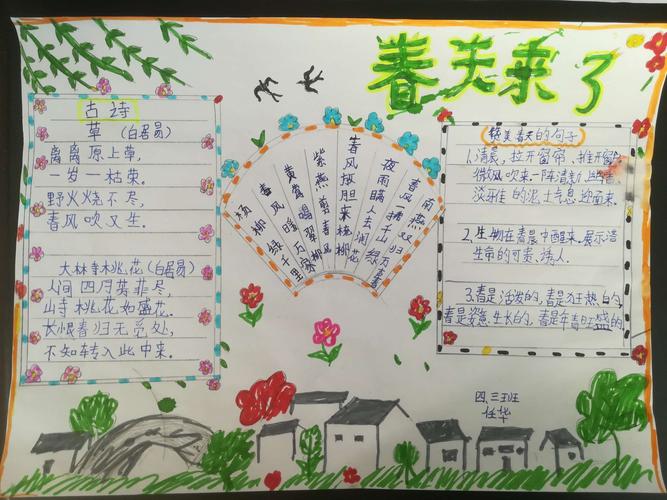 春天来了
古诗
草 (白居易)
离离原上草,
一岁一枯荣.
野火烧不尽,
春风吹又生.
大林寺桃花(白居易)
人间四月芳菲尽,
山寺桃花如盛花.
长恨春归无觅处,
不知转入此中来.
杨柳绿千里
春风暖万家
黄莺唱翠柳
紫燕剪春风
春风放胆来梳柳
夜雨瞒人去润花
春风一拂千山绿
南燕双归万
赞美春天的句子
1.清晨,拉开窗帘,推开窗
微风吹来一阵清新,些许
淡雅的泥土气息迎面来.
2.生物在春晨中醒来,展示
生命的可贵,诱人.
3.春是活发的,春是狂热的,
春是姿意生长的,春是年青旺盛的
四.三班
任华